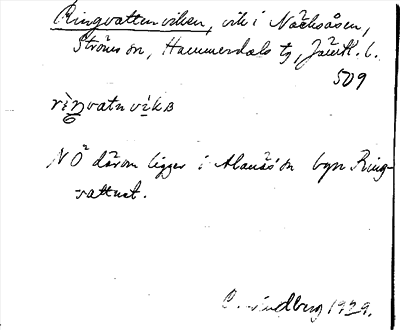 Ringvattenviken, vik i Näcksåsen,
Ströms sn, Hammerdals tg, Jämtl. l.
509
rìŋvatnvìkɐ
NÖ därom ligger i Alanäs sn byn Ring-
vattnet.
C. Lindberg 1929.